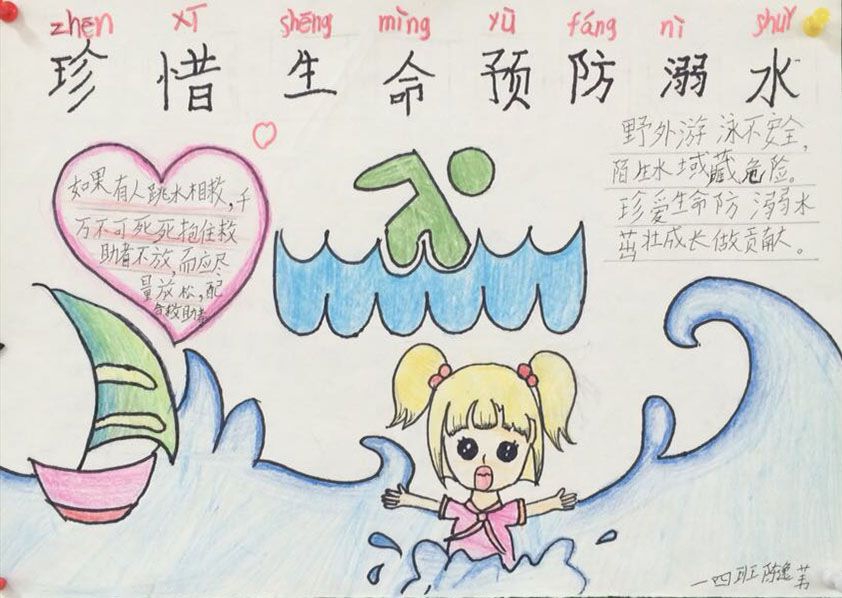 zhēn xī shēng mìng yù fáng nì shuǐ
珍惜生命预防溺水
如果有人跳水相救,千
万不可死死抱住救
助者不放,而应尽
量放松,配
合救助者
野外游泳不安全,
陌生水域藏危险。
珍爱生命防溺水
茁壮成长做贡献。
一四班陈逸